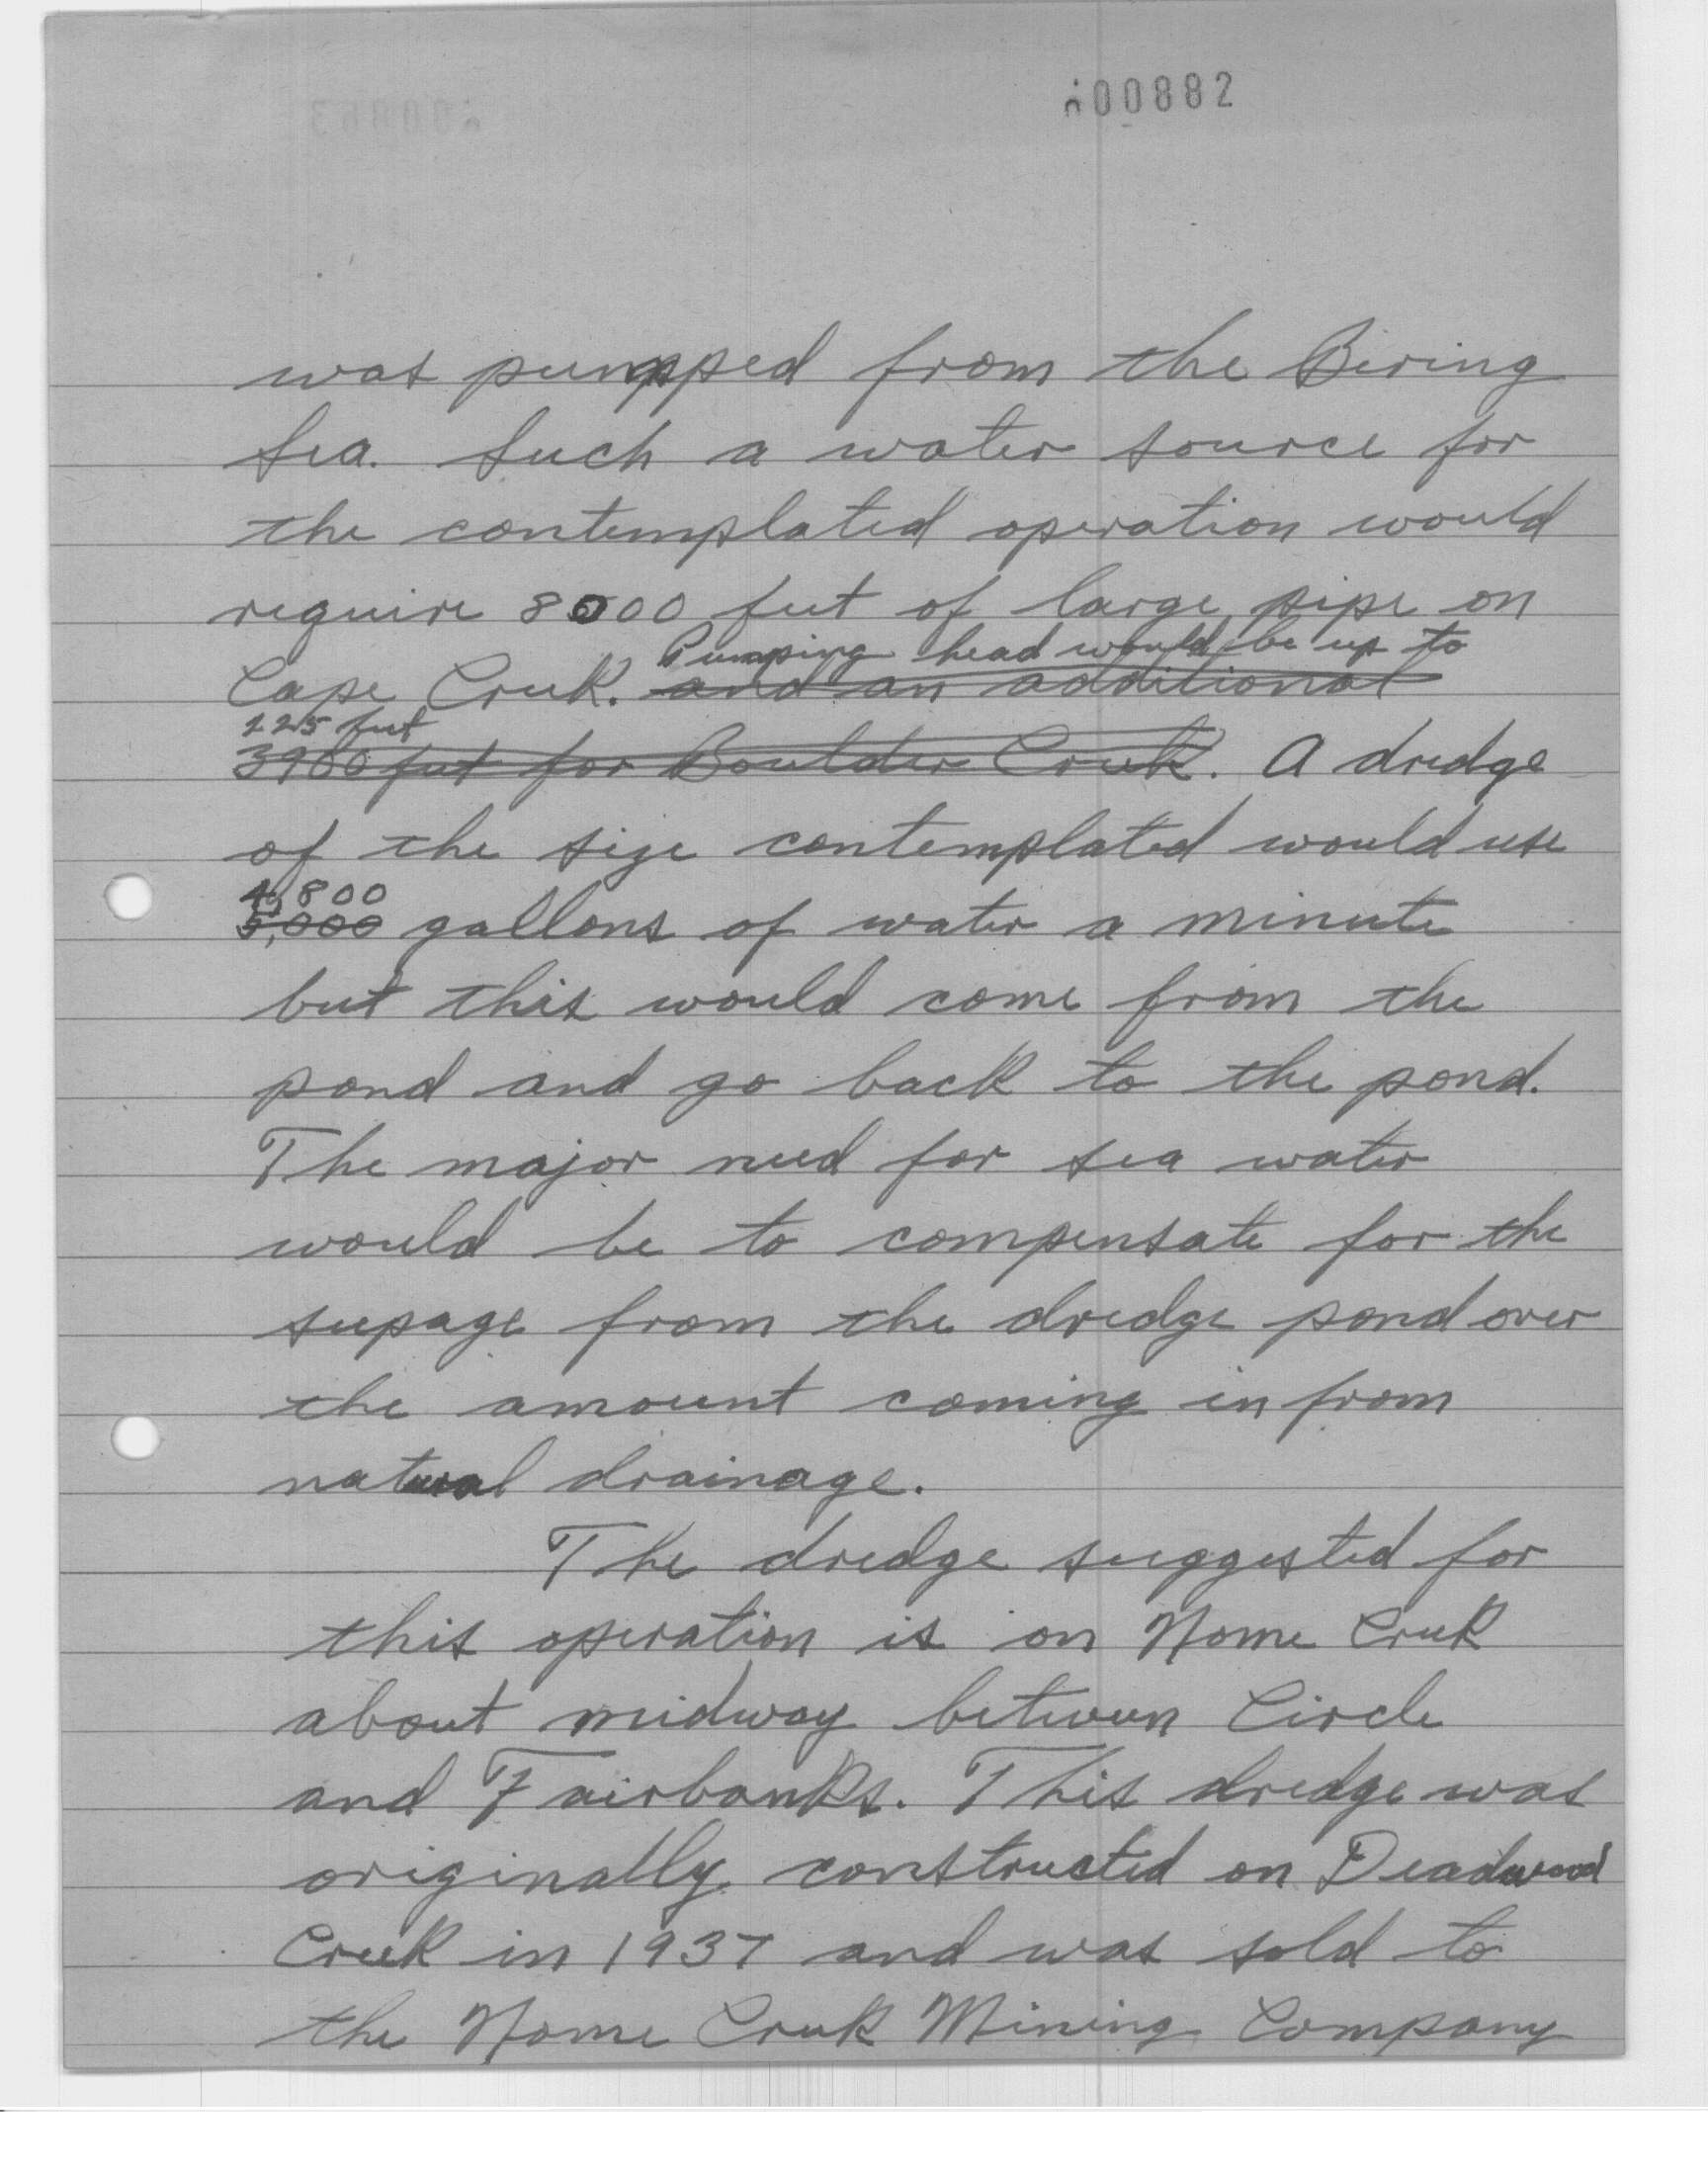 000882
was pumpped from the Bering
Sea. Such a water source for
the contemplated operation would
require 8000 feet of large pipe on
Pumping head would be up to
Cape Creek. and an additional
225 feet
3900 feet for Boulder Creek. A dredge
of the size contemplated would use
4,800
5,000 gallons of water a minute
but this would come from the
pond and go back to the pond.
The major need for sea water
would be to compensate for the
seepage from the dredge pond over
the amount coming in from
natural drainage.
The dredge suggested for
this operation is on Nome Creek
about midway between Circle
and Fairbanks. This dredge was
originally constructed on Deadwood
Creek in 1937 and was sold to
the Nome Creek Mining Company